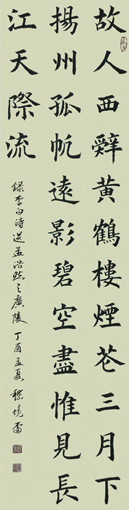 故人西辭黃鶴樓煙花三月下
揚州孤帆遠影碧空盡惟見長
江天際流
錄李白詩送孟浩然之廣陵 丁酉孟夏